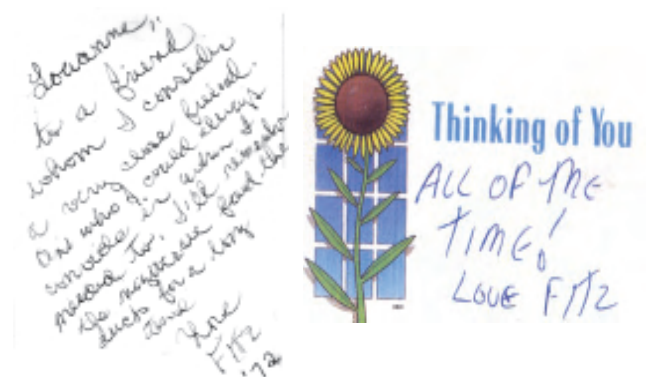 Louanne,
to a friend
whom I consider
a very close friend.
One who I could always
confide in when I
needed to, I'll remember
the                and the
ducks for a long
time
Love
FITZ
'72
Thinking of You
ALL OF THE
TIME!
LOVE FITZ